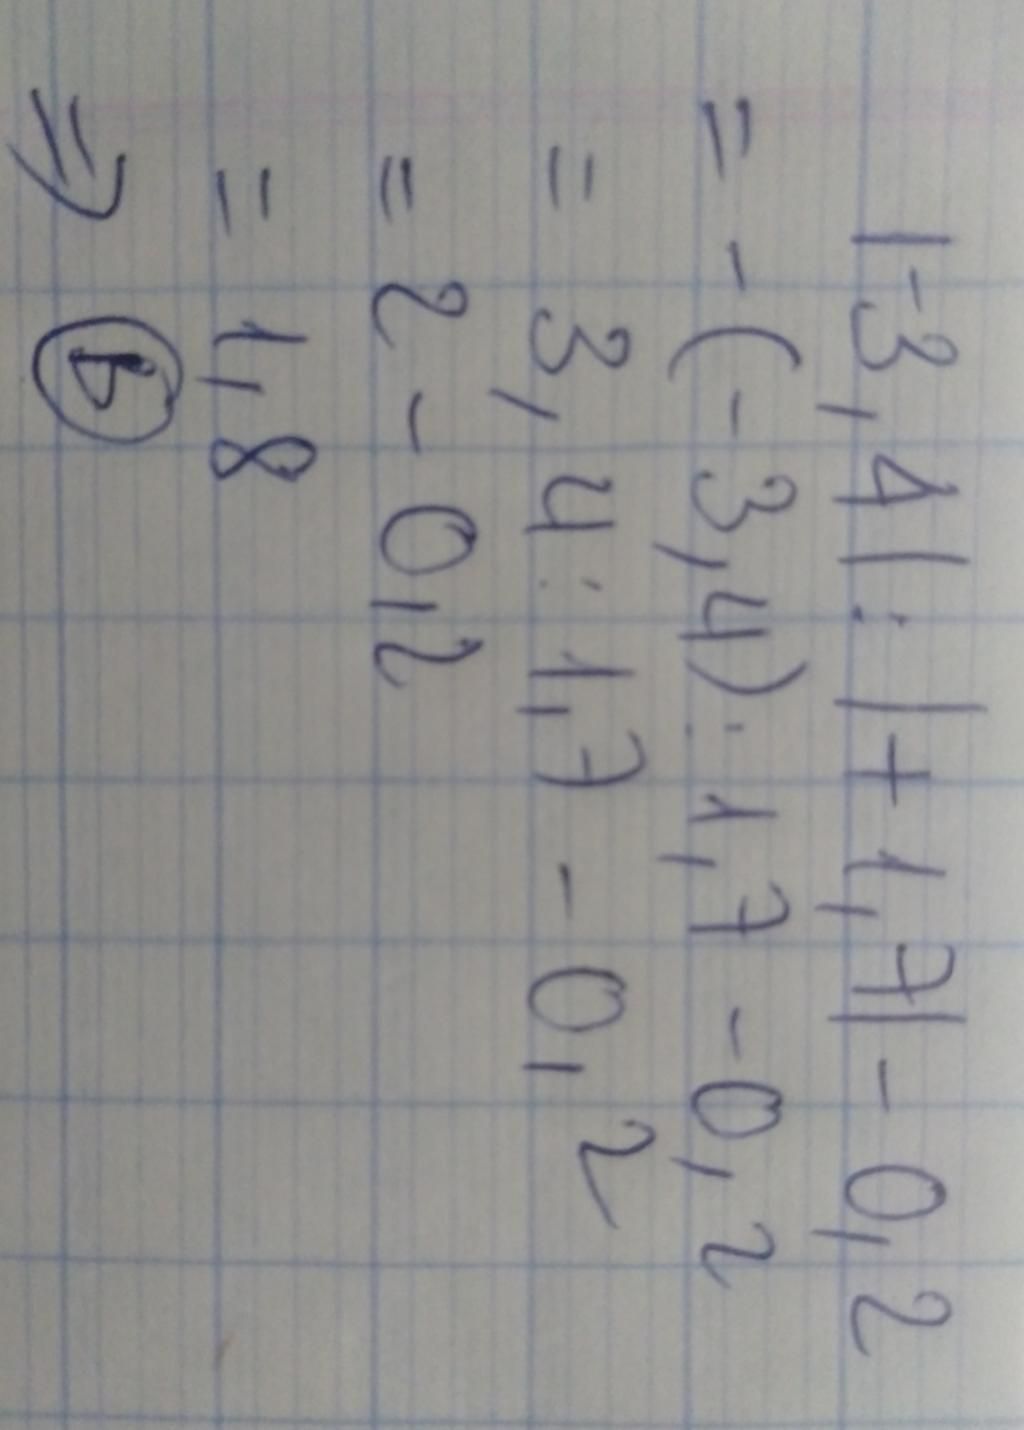 |-3,4| : |+1,7| - 0,2
= -(-3,4) : 1,7 - 0,2
= 3,4 : 1,7 - 0,2
= 2 - 0,2
= 1,8
⇒ Б